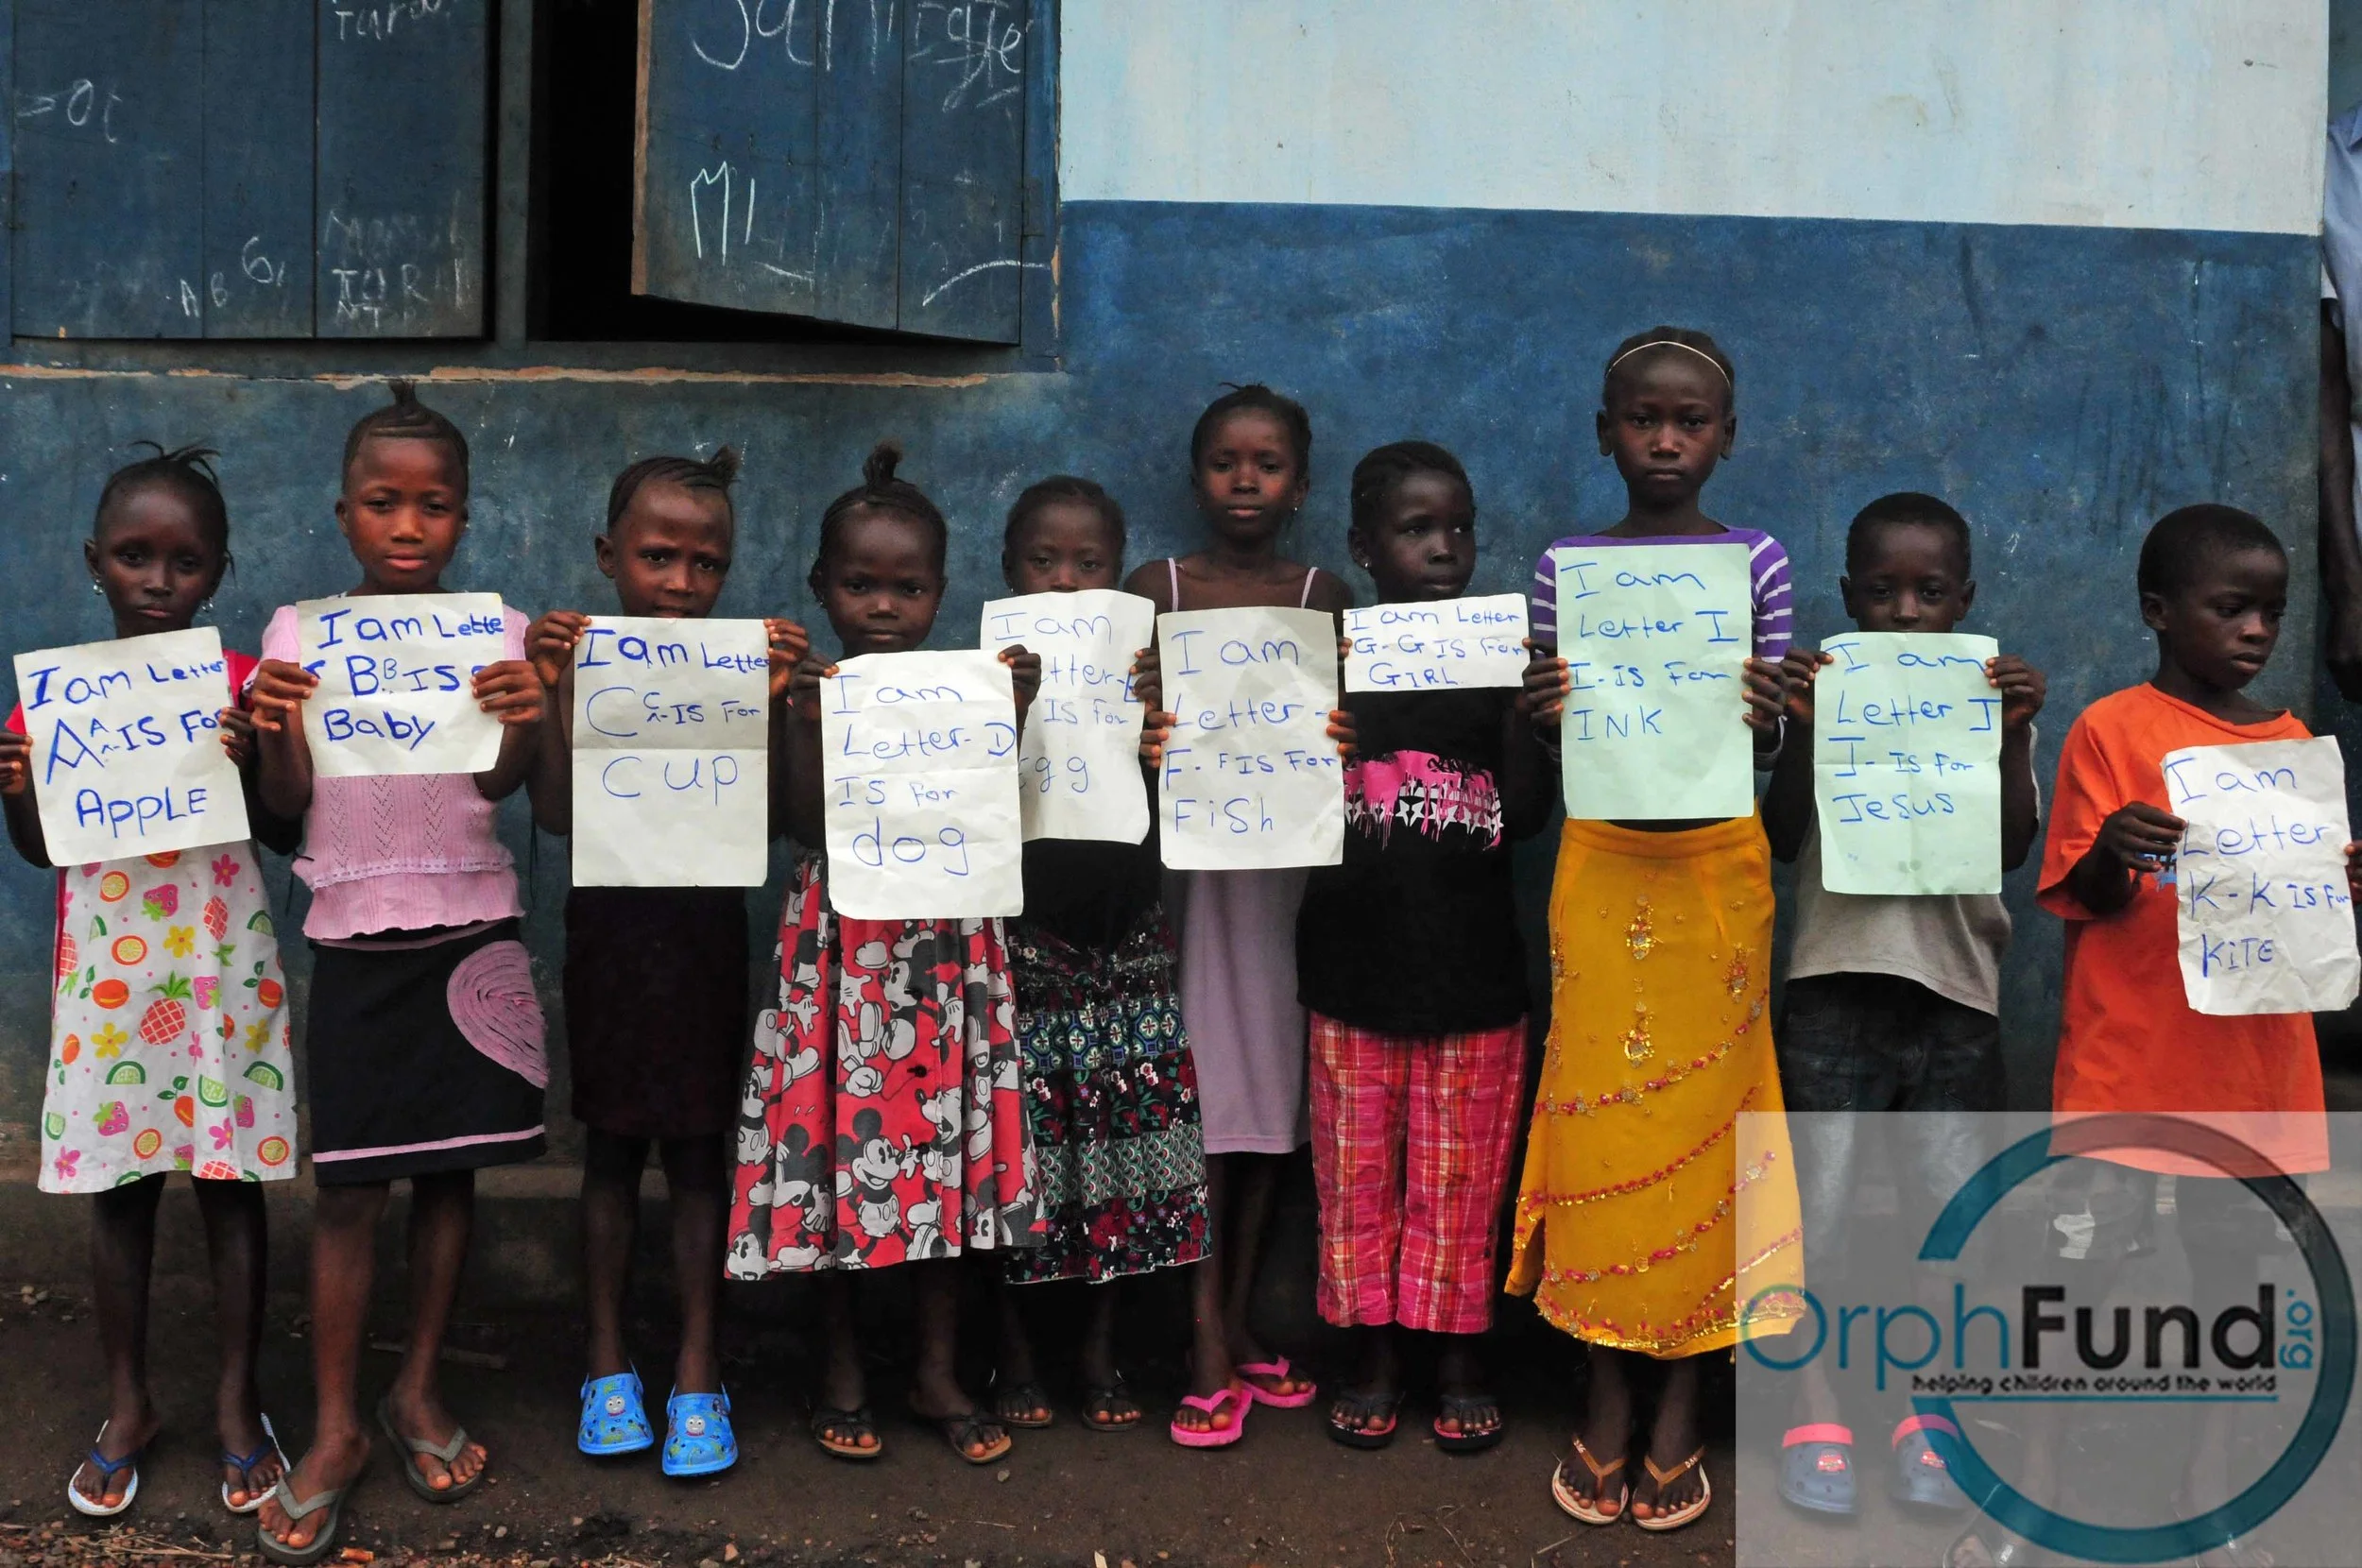 Tara
Jah
=Ot
M
A B 6,
I am Letter
A A IS For
APPLE
I am Lette
B B IS
Baby
I am Letter
C C IS For
Cup
I am
Letter-D
IS For
dog
I am
tter-
IS For
gg
I am
Letter-
F-F IS For
FiSh
I am Letter
G-G IS For
GIRL
I am
Letter I
I-IS For
INK
I am
Letter J
J-IS For
Jesus
I am
Letter
K-K IS For
KiTE
OrphFund.org
helping children around the world